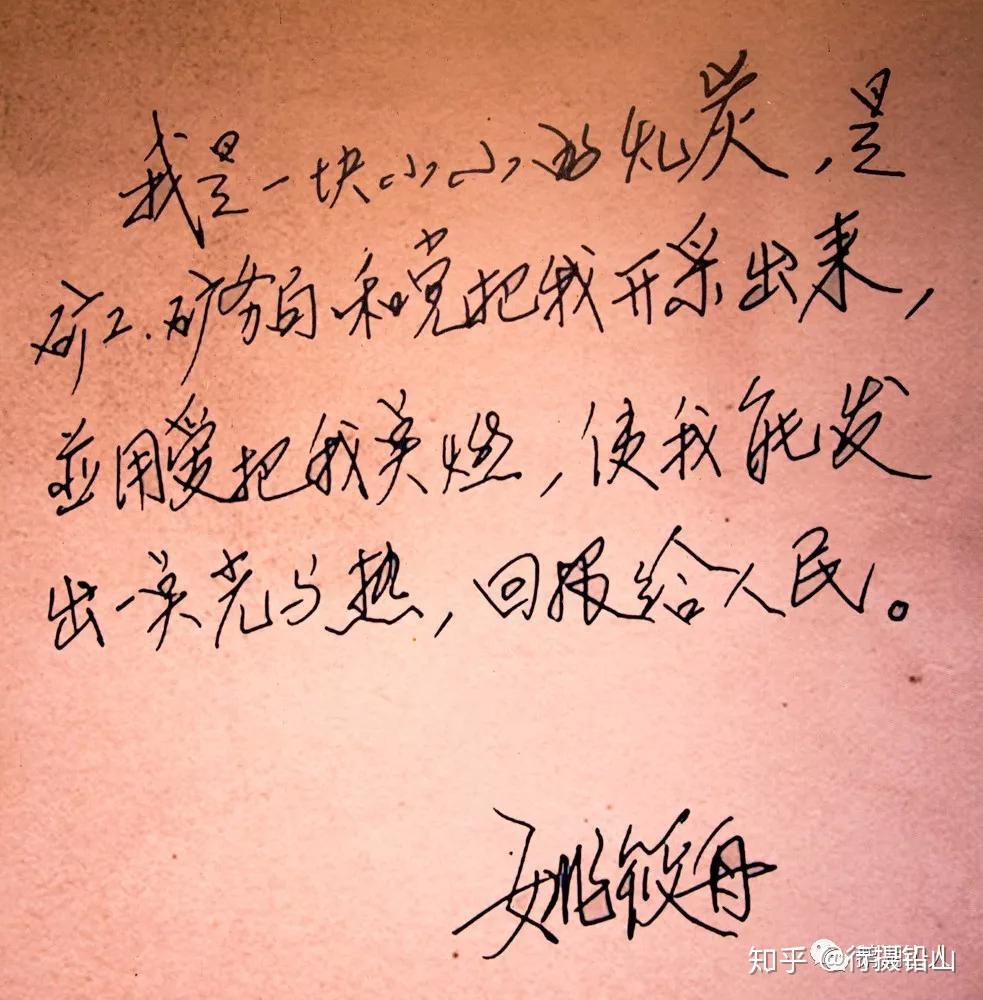 我是一块小小的炭，是
矿工、矿务局和党把我开采出来，
並用爱把我奌燃，使我能发
出一奌光与热，回报给人民。
姚筱舟
知乎 @行摄铅山